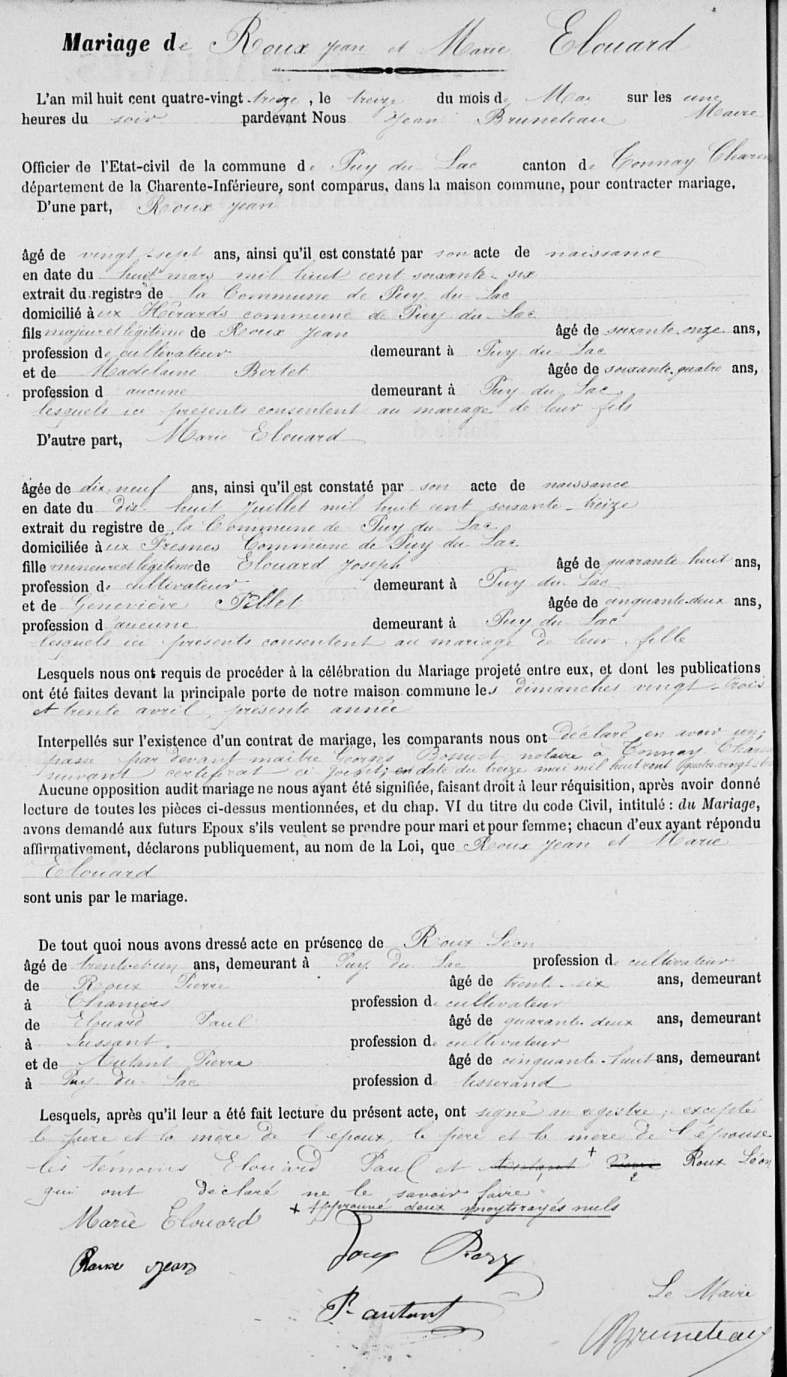 Mariage de Roux Jean et Marie Elouard
L'an mil huit cent quatre-vingt treize, le treize du mois de Mai sur les une
heures du soir pardevant Nous Jean Bruneteau Maire
Officier de l'Etat-civil de la commune de Puy du Lac canton de Tonnay Charen
département de la Charente-Inférieure, sont comparus, dans la maison commune, pour contracter mariage,
D'une part, Roux Jean
âgé de vingt-sept ans, ainsi qu'il est constaté par son acte de naissance
en date du huit mars mil huit cent soixante-six
extrait du registre de la Commune de Puy du Lac
domicilié aux Hérards commune de Puy du Lac
fils majeur et légitime de Roux Jean âgé de soixante-onze ans,
profession de cultivateur demeurant à Puy du Lac
et de Madelaine Bertet âgée de soixante-quatre ans,
profession d aucune demeurant à Puy du Lac
lesquels ici présents consentent au mariage de leur fils
D'autre part, Marie Elouard
âgée de dix-neuf ans, ainsi qu'il est constaté par son acte de naissance
en date du dix huit Juillet mil huit cent soixante-treize
extrait du registre de la Commune de Puy du Lac
domiciliée aux Fresnes Commune de Puy du Lac
fille mineure et légitime de Elouard Joseph âgé de quarante huit ans,
profession de cultivateur demeurant à Puy du Lac
et de Geneviève Pellet âgée de cinquante-deux ans,
profession d aucune demeurant à Puy du Lac
lesquels ici présents consentent au mariage de leur fille
Lesquels nous ont requis de procéder à la célébration du Mariage projeté entre eux, et dont les publications
ont été faites devant la principale porte de notre maison commune les dimanches vingt-trois
et trente avril, présente année
Interpellés sur l'existence d'un contrat de mariage, les comparants nous ont déclaré en avoir un,
passé par devant maître Georges notaire à Tonnay Charen
suivant certificat ci joint; en date du treize mai mil huit cent quatre vingt
Aucune opposition audit mariage ne nous ayant été signifiée, faisant droit à leur réquisition, après avoir donné
lecture de toutes les pièces ci-dessus mentionnées, et du chap. VI du titre du code Civil, intitulé : du Mariage,
avons demandé aux futurs Epoux s'ils veulent se prendre pour mari et pour femme; chacun d'eux ayant répondu
affirmativement, déclarons publiquement, au nom de la Loi, que Roux Jean et Marie
Elouard
sont unis par le mariage.
De tout quoi nous avons dressé acte en présence de Roux Léon
âgé de trente et un ans, demeurant à Puy du Lac profession de cultivateur
de Roux Pierre âgé de trente-six ans, demeurant
à Chamers profession de cultivateur
de Elouard Paul âgé de quarante-deux ans, demeurant
à Lussant profession de cultivateur
et de Autant Pierre âgé de cinquante-huit ans, demeurant
à Puy du Lac profession d tisserand
Lesquels, après qu'il leur a été fait lecture du présent acte, ont signé au registre, excepté
le père et la mère de l'époux, le père et la mère de l'épouse
les témoins Elouard Paul et + Roux Léon
qui ont déclaré ne le savoir faire.
Marie Elouard + Approuvé deux mots rayés nuls
Roux Jean
P. autant
Le Maire
Bruneteau